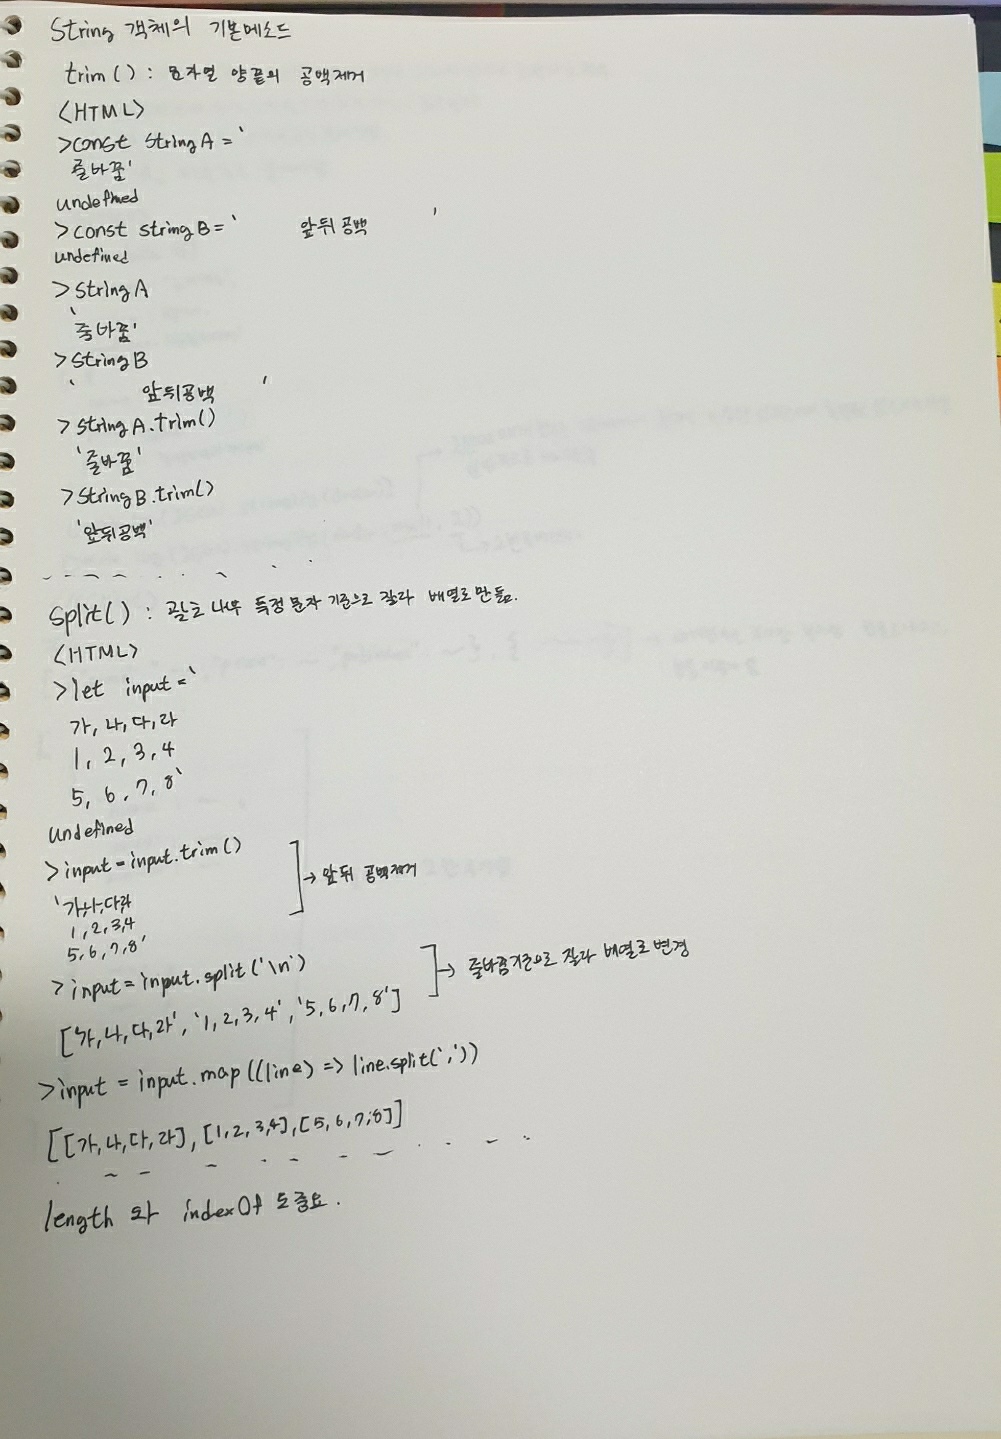 String 객체의 기본메소드
trim() : 문자열 양끝의 공백제거
<HTML>
>const stringA = `
줄바꿈`
undefined
>const stringB = ` 앞뒤공백 `
undefined
>stringA
`
줄바꿈`
>stringB
' 앞뒤공백 '
>stringA.trim()
'줄바꿈'
>stringB.trim()
'앞뒤공백'
split() : 특정 문자 기준으로 잘라 배열로 만듦.
<HTML>
>let input = `
가, 나, 다, 라
1, 2, 3, 4
5, 6, 7, 8`
undefined
>input = input.trim() → 앞뒤 공백제거
'가,나,다,라
1,2,3,4
5,6,7,8'
>input = input.split('\n') → 줄바꿈기준으로 잘라 배열로 변경
['가,나,다,라', '1,2,3,4', '5,6,7,8']
>input = input.map((line) => line.split(','))
[[가,나,다,라], [1,2,3,4], [5,6,7,8]]
length 와 indexOf 도 중요.